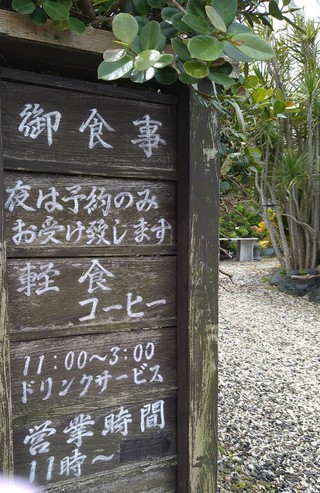 御食事
夜は予約のみ
お受け致します
軽食
コーヒー
11:00～3:00
ドリンクサービス
営業時間
11時～